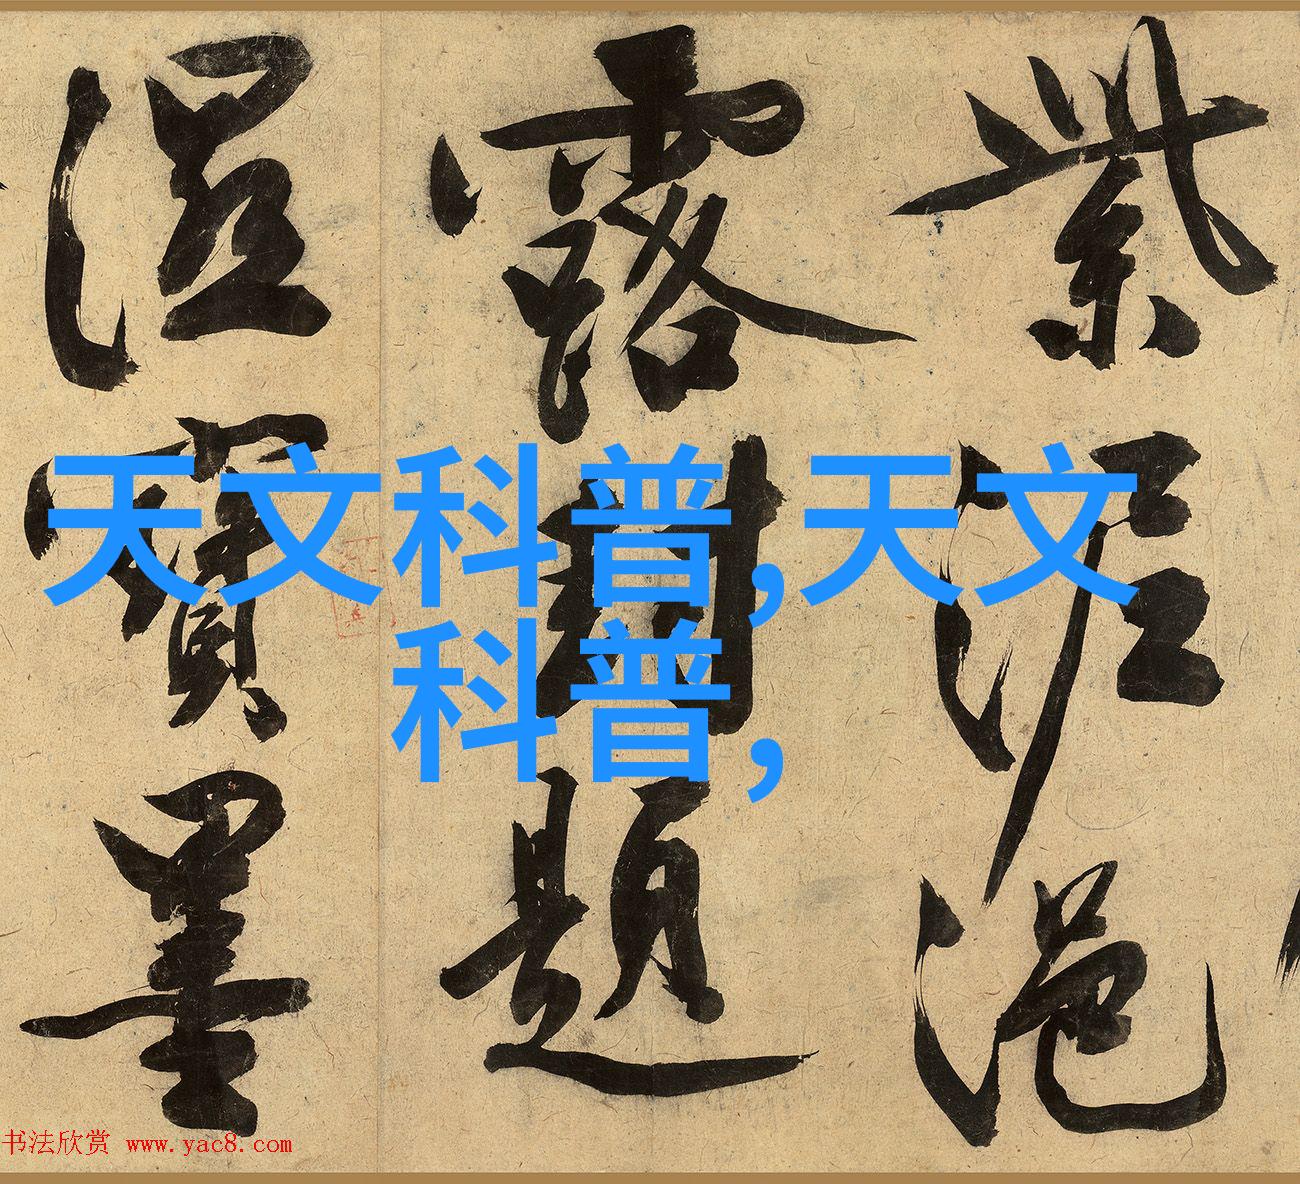 紫泥浥
露封題
湿寶墨
天文科普,天文
科普,
书法欣赏 www.yac8.com